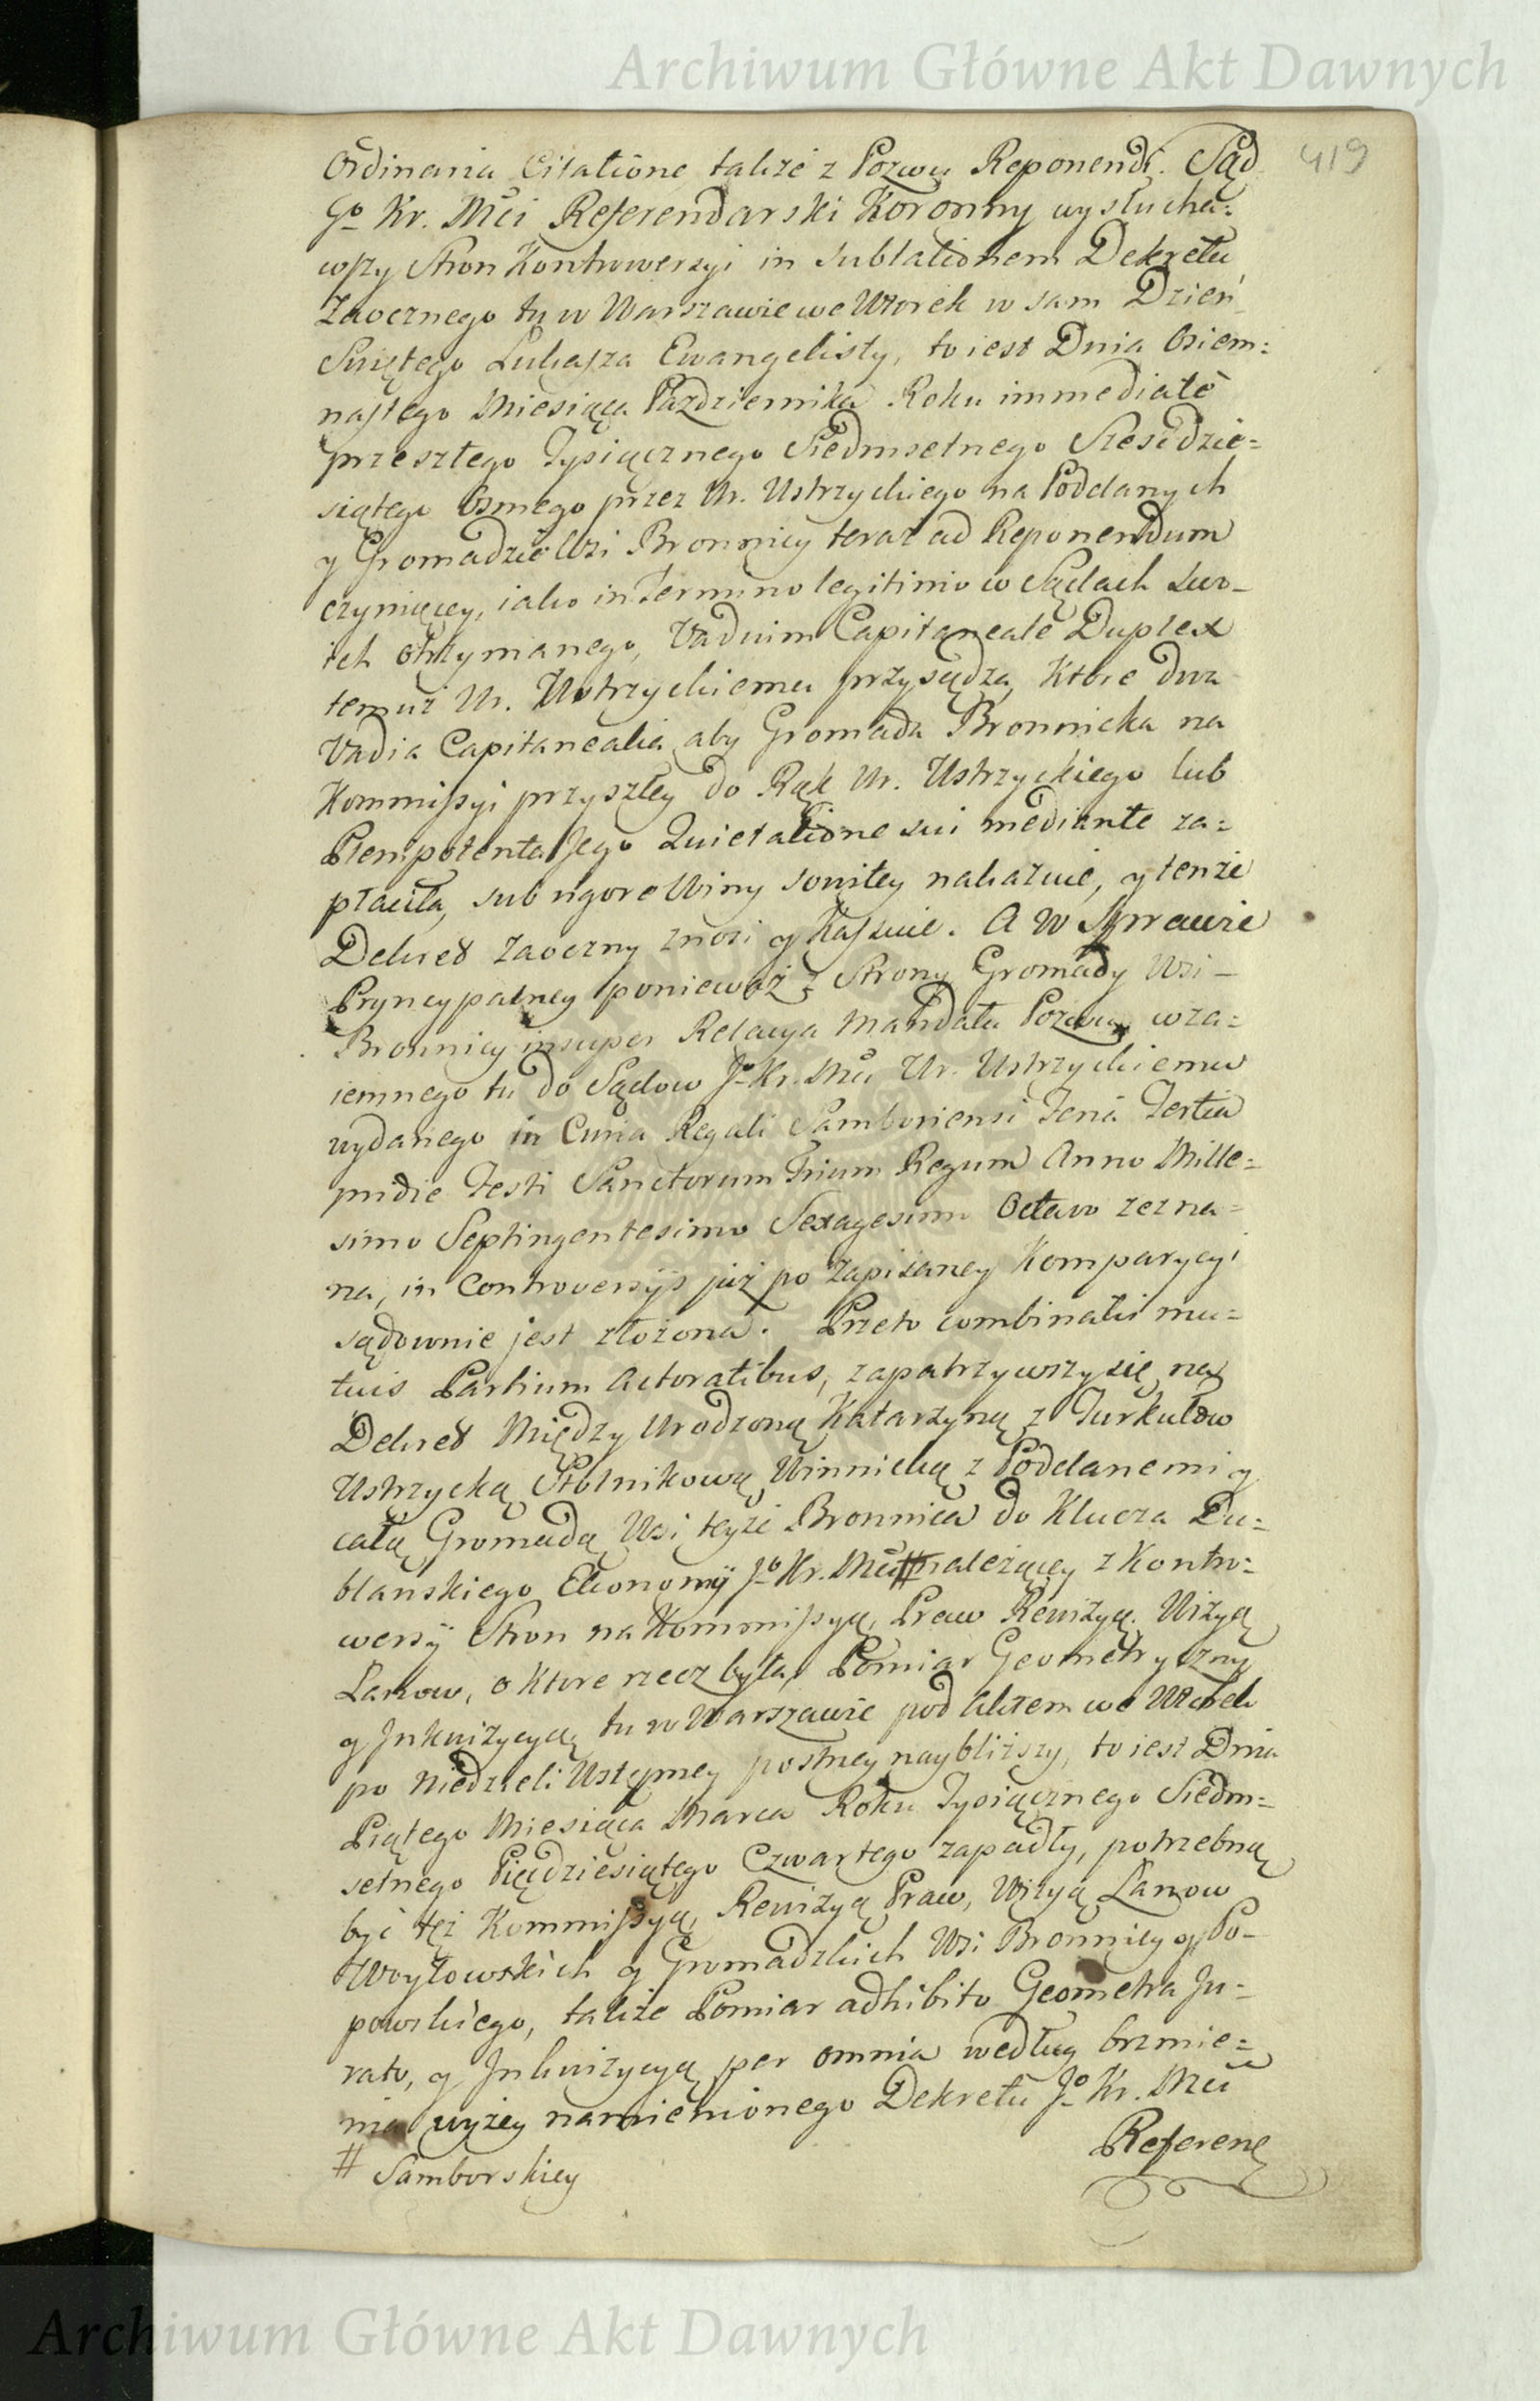 Archiwum Główne Akt Dawnych
419
Ordinaria Citatione także z Pozwu Reponendi. Sąd
Jo Kr. Mci Referendarski Koronny wysłucha=
wszy Stron Kontrowersyi in sublationem Dekretu
Zaocznego tu w Warszawie we Wtorek w sam Dzień
Swiętego Łukasza Ewangelisty, to iest Dnia Osiem=
nastego Miesiąca Pazdziernika Roku immediatè
przeszłego Tysiącznego Siedmsetnego Szescdzie=
siątego Osmego przez Ur. Ustrzyckiego na Poddanych
y Gromadzie Wsi Bronnicy teraz ad Reponendum
czyniącey, iako in Termino legitimo w Sądach Swo-
ich otrzymanego, Vadium Capitaneale Duplex
temuż Ur. Ustrzyckiemu przysądza, Ktore dwa
Vadia Capitanealia aby Gromada Bronnicka na
Kommissyi przyszłey do Rąk Ur. Ustrzyckiego lub
Plenipotenta Jego Quietatione sui mediante za=
płaciła, sub rigore Winy sowitey nakazuie, y tenże
Dekret Zaoczny znosi y Kassuie. A w Sprawie
Pryncypalney ponieważ z Strony Gromady Wsi -
Bronnicy insuper Relacya Mandatu Pozwu wza=
iemnego tu do Sądow Jo Kr. Mci Ur. Ustrzyckiemu
wydanego in Curia Regali Samboriensi Feria Tertia
pridie Festi Sanctorum Trium Regum Anno Mille=
simo Septingentesimo Sexagesimo Octavo zezna=
na, in Controversijs już po zapisaney Komparycyi
sądownie jest złożona. Przeto combinatis mu=
tuis Partium Actoratibus, zapatrzywszy się na
Dekret Między Urodzoną Katarzyną z Turkułow
Ustrzycką Stolnikową Winnicką z Poddanemi y
całą Gromadą Wsi teyże Bronnica do Klucza Du=
blanskiego Ekonomij Jo Kr. Mci # należącey z Kontro=
wersij Stron na Kommissyą, Praw Rewizyą, Wizyą
Lanow, o Ktore rzecz była, Pomiar Geometryczny
y Inkwizycyą tu w Warszawie pod Aktem we Wtorek
po Niedzieli Wstępney postney naybliższy, to iest Dnia
Piątego Miesiąca Marca Roku Tysiącznego Siedm=
setnego Pięćdziesiątego Czwartego zapadły, potrzebną
być też Kommissyą, Rewizyą Praw, Wizyą Lanow
Woytowskich y Gromadzkich Wsi Bronnicy y Po-
powskiego, także Pomiar adhibito Geometra Ju=
rato, y Inkwizycyą per omnia według brzmie=
nia wyżey namienionego Dekretu Jo Kr. Mci
# Samborskiey
Referen
Archiwum Główne Akt Dawnych